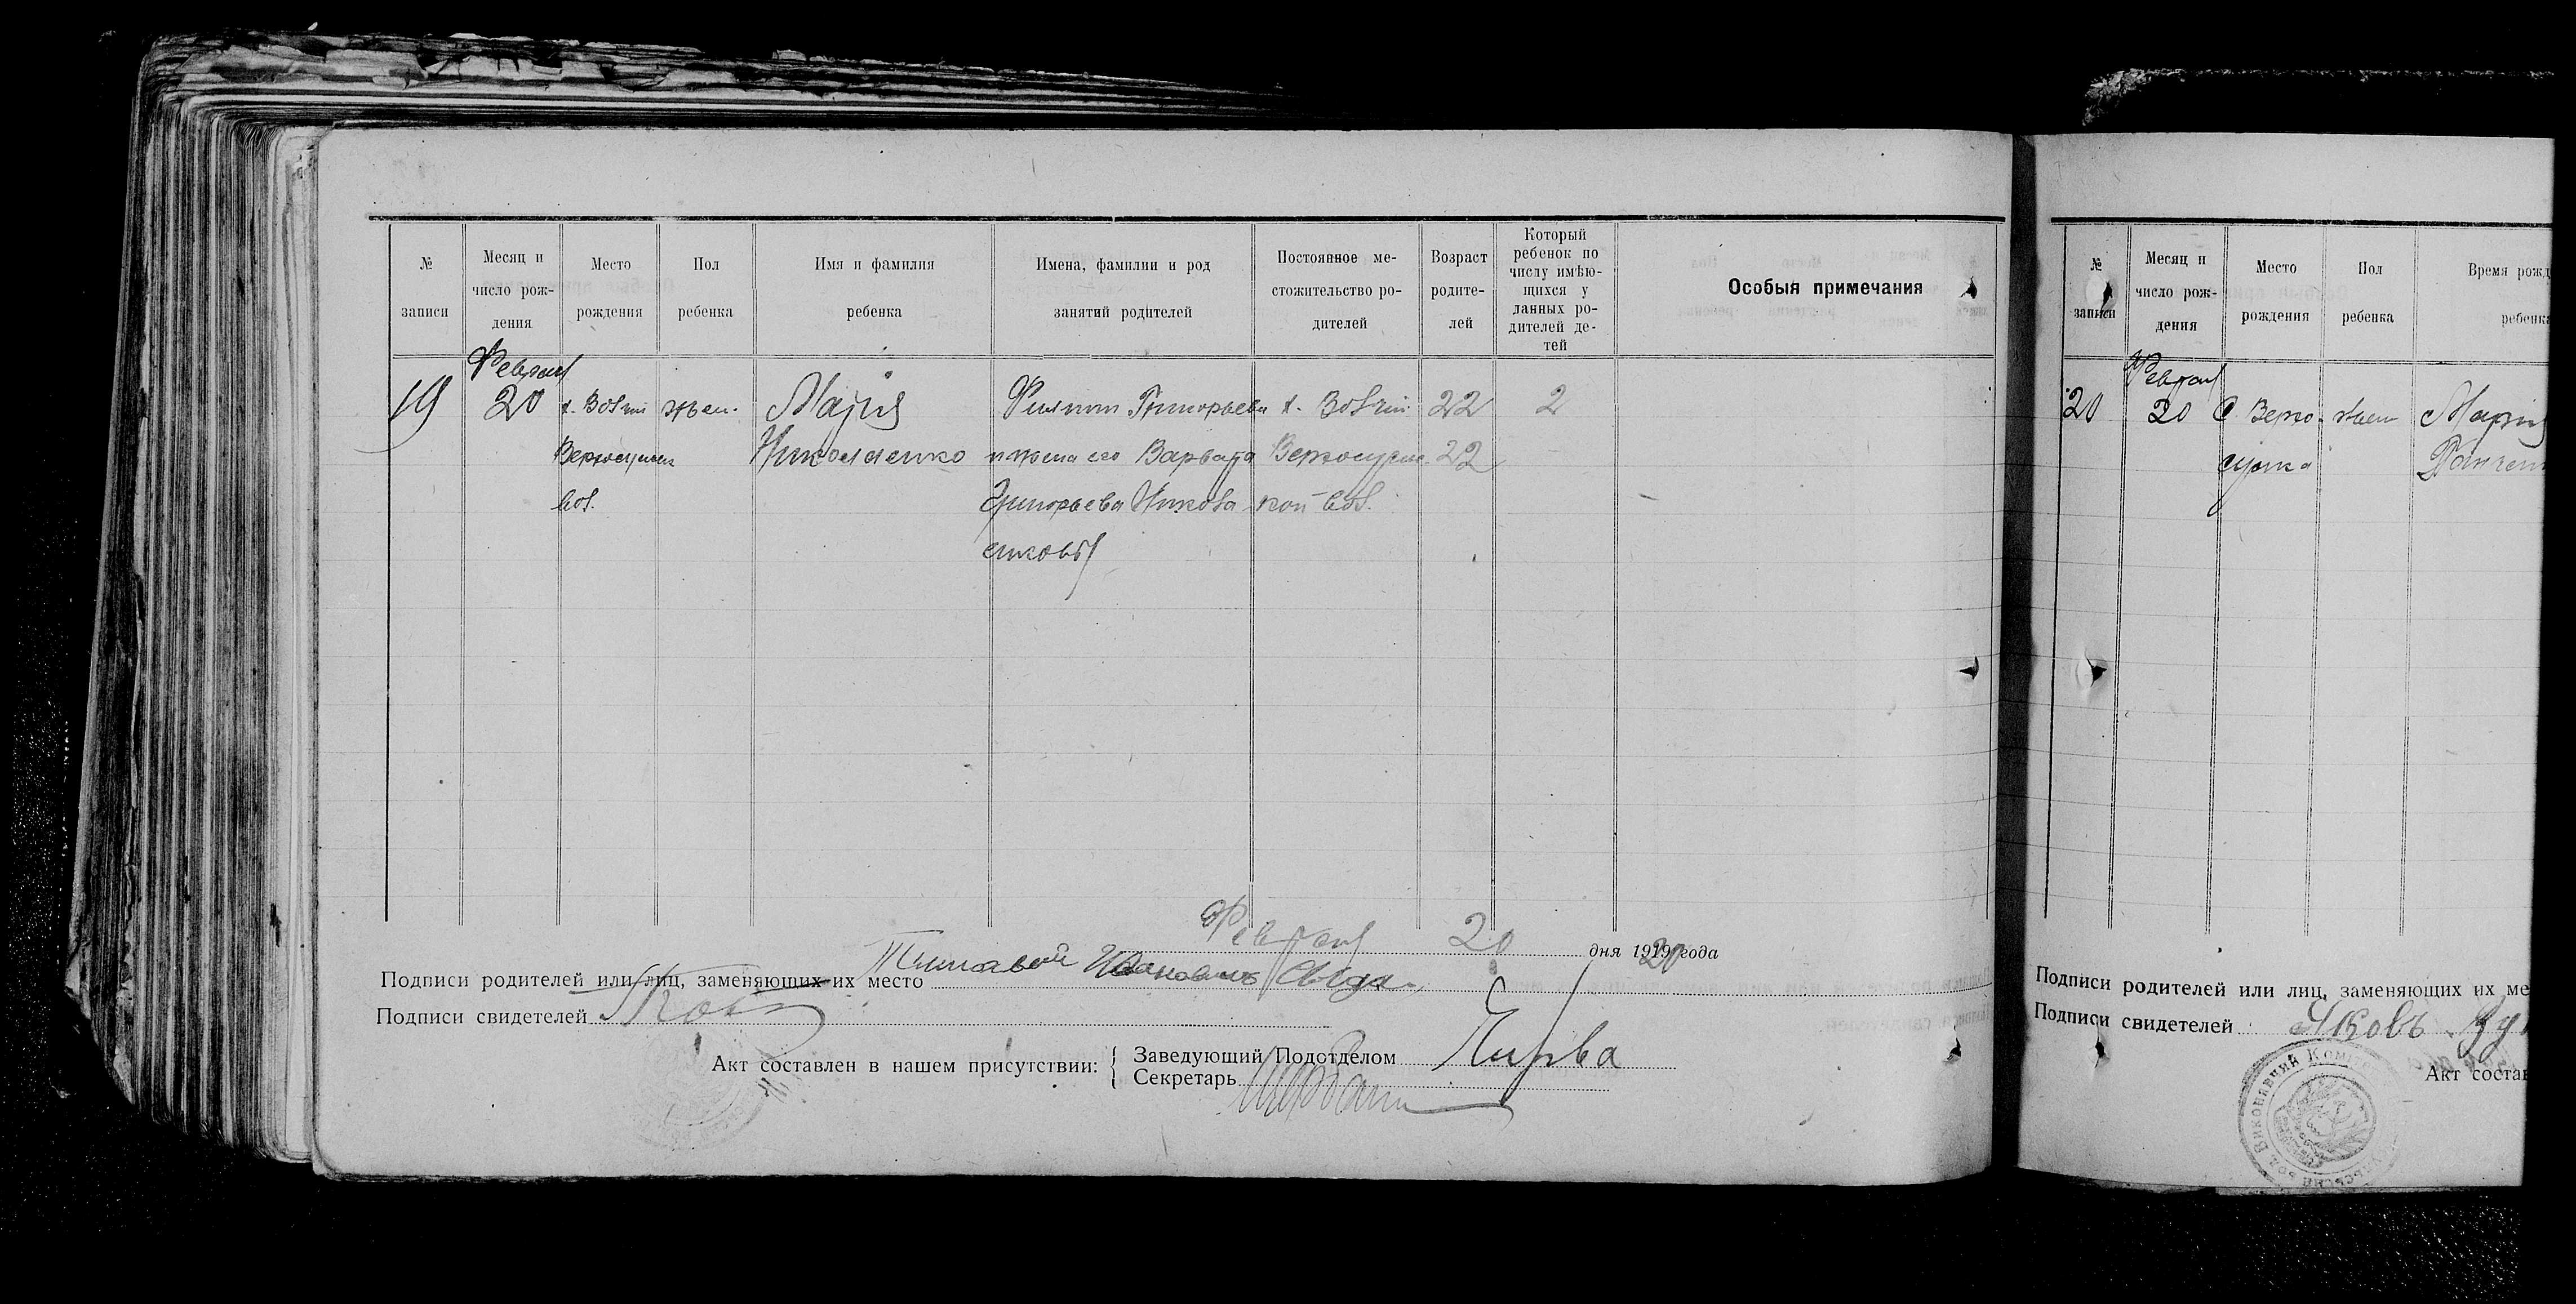 № записи
Месяц и число рож- дения
Место рождения
Пол ребенка
Имя и фамилия ребенка
Имена, фамилии и род занятий родителей
Постоянное ме- стожительство ро- дителей
Возраст родите- лей
Который ребенок по числу имѣю- щихся у данных ро- дителей де- тей
Особыя примечания
19
Февраля
20
жен.
Мария
Николаенко
Филипп Григорьева
и жена его Варвара
Григорьева Никола
енковы
Верхосуль
кой вол.
вол.
22
22
2
Февраля 20 дня 1919 20 года
Подписи родителей или лиц, заменяющих их место
Подписи свидетелей
Акт составлен в нашем присутствии:
Заведующий Подотделом Кирва
Секретарь
№ записи
Месяц и число рож- дения
Место рождения
Пол ребенка
Время рожд
ребенка
20
Февраля
20
с Верхо-
сулка
жен
Мария
Подписи родителей или лиц, заменяющих их ме
Подписи свидетелей Яковъ
Акт состав